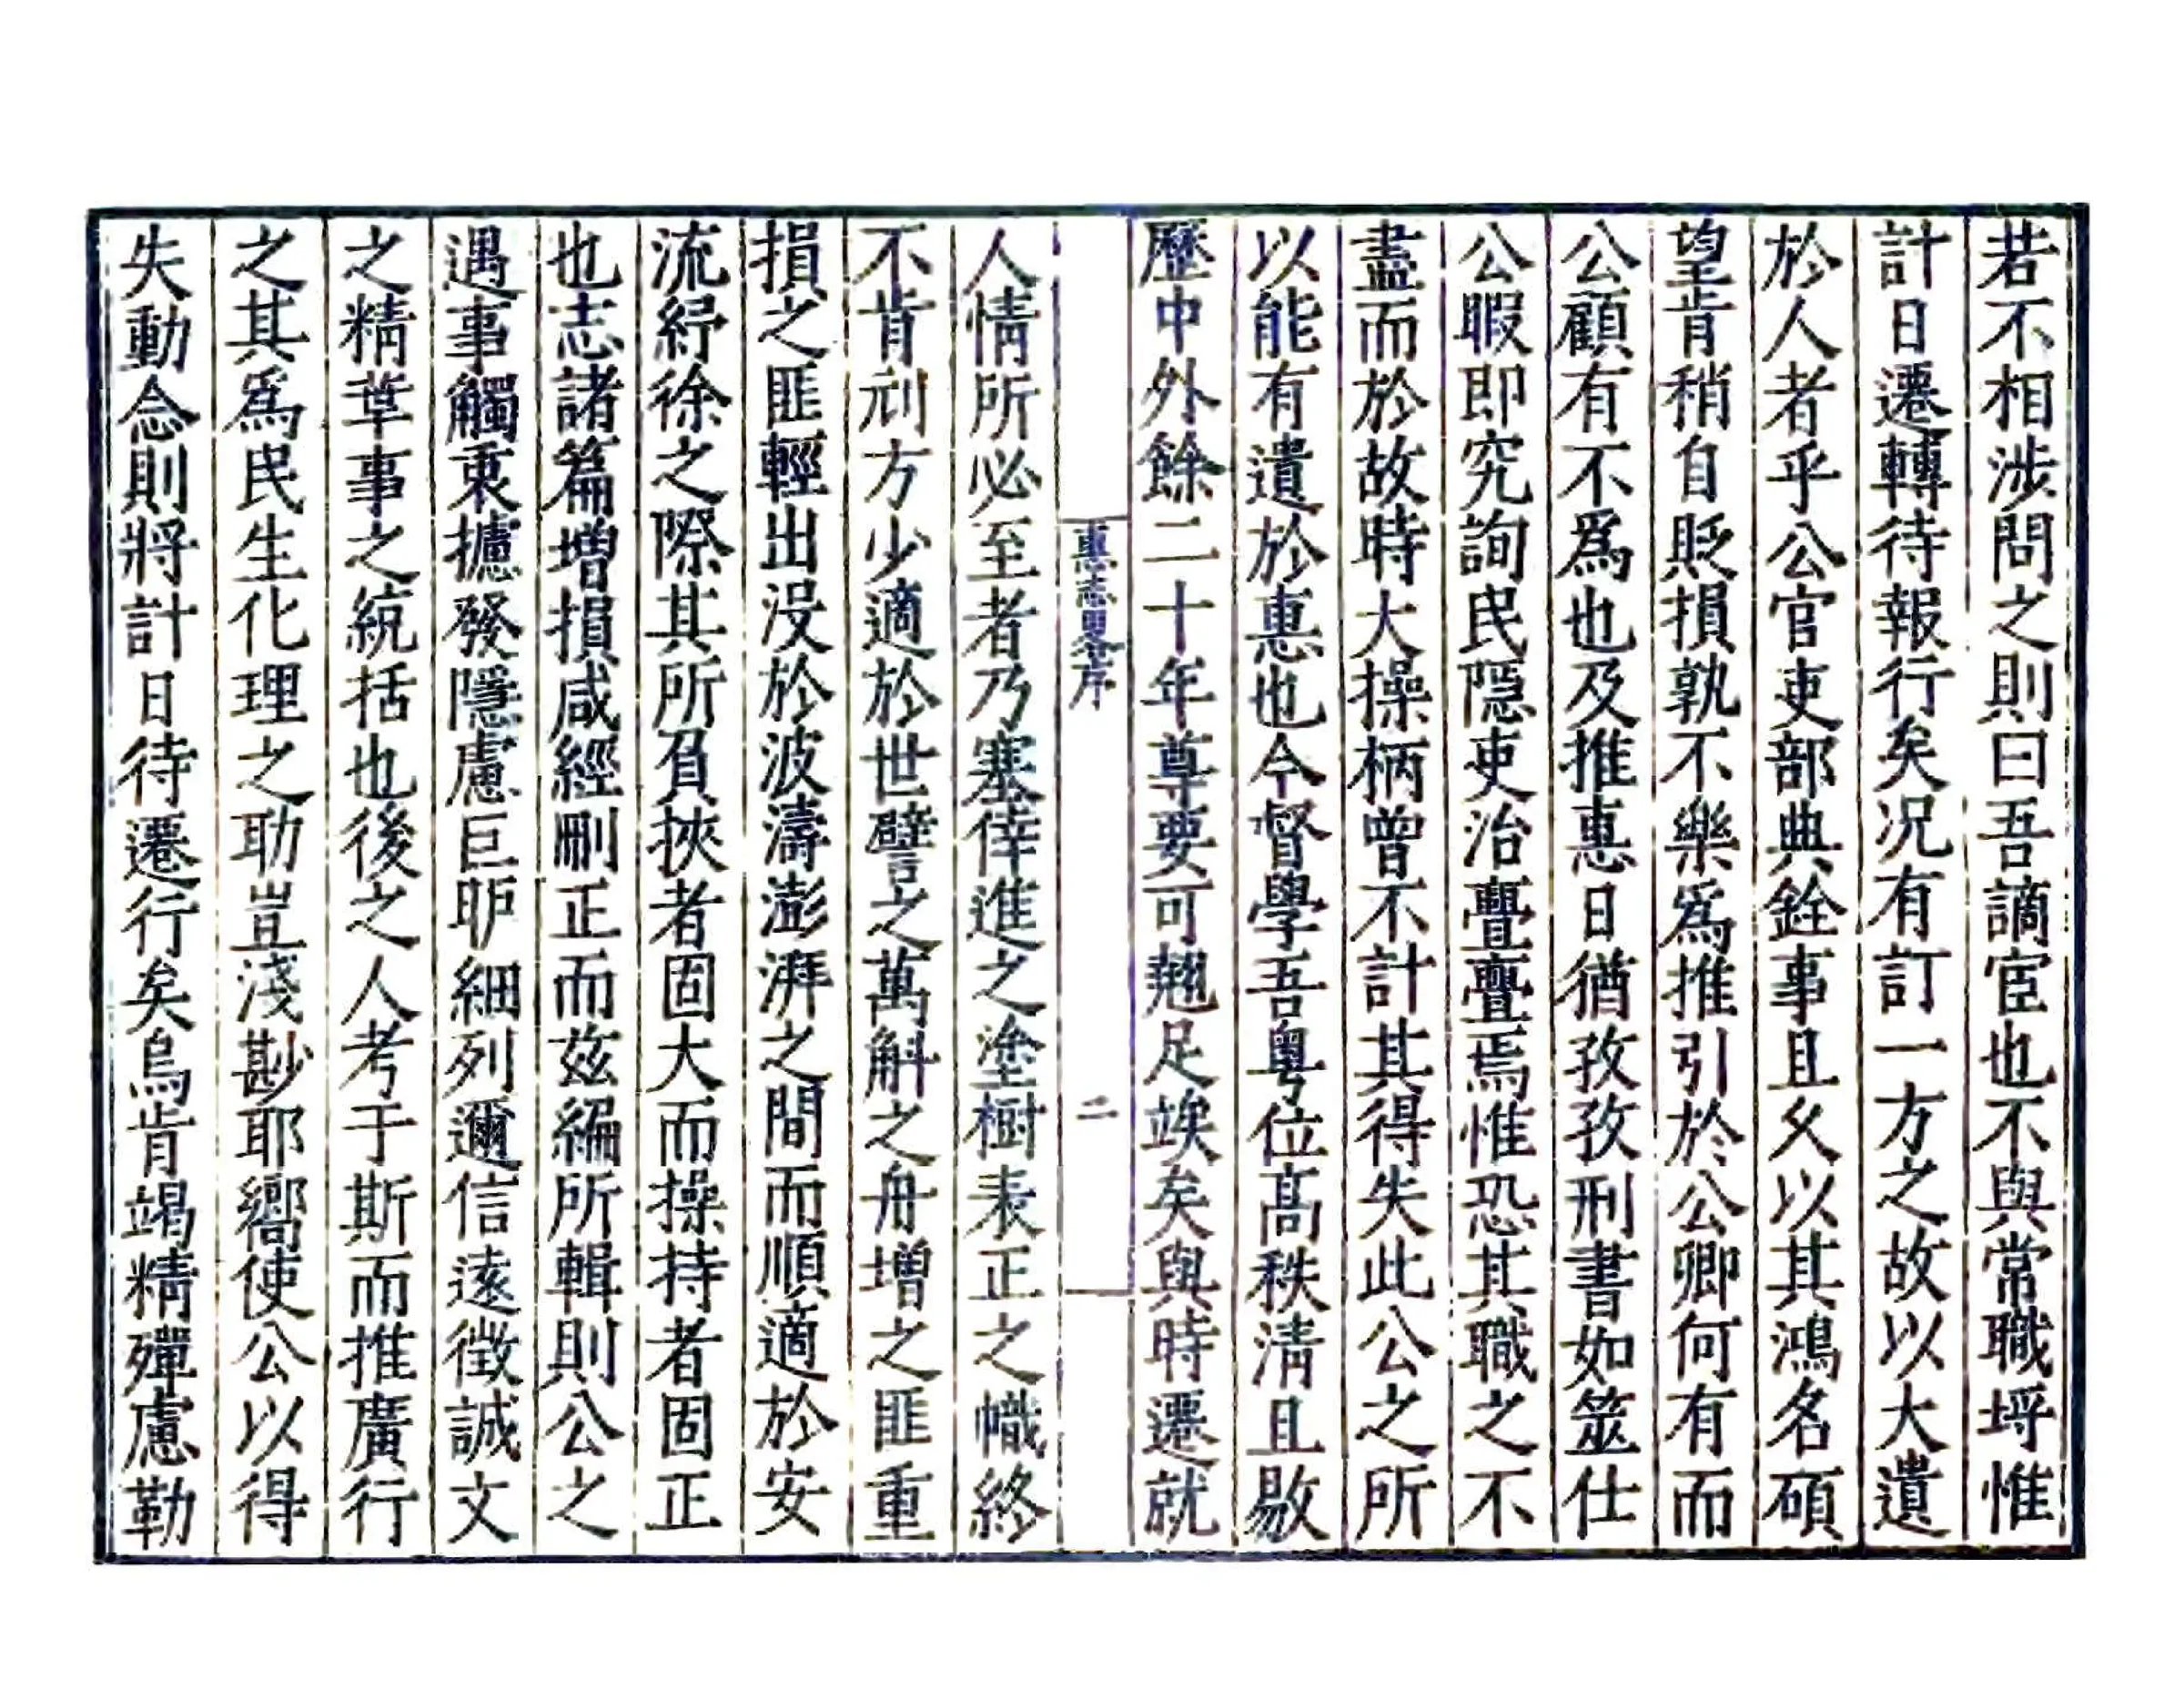 若不相涉問之則曰吾謫宦也不與常職埒惟
計日遷轉待報行矣况有訂一方之故以大遺
於人者乎公官吏部典銓事且久以其鴻名碩
望肯稍自貶損孰不樂爲推引於公卿何有而
公顧有不爲也及推惠日猶孜孜刑書如筮仕
公暇即究詢民隱吏治亹亹焉惟恐其職之不
盡而於故時大操柄曾不計其得失此公之所
以能有遺於惠也今督學吾粤位髙秩淸且敭
歷中外餘二十年尊要可翹足竢矣與時遷就
惠志畧序
二
人情所必至者乃塞倖進之塗樹表正之幟終
不肯刓方少適於世譬之萬斛之舟增之匪重
損之匪輕出没於波濤澎湃之間而順適於安
流紓徐之際其所負挾者固大而操持者固正
也志諸篇增損咸經刪正而玆編所輯則公之
遇事觸衷攄發隱慮巨昈細列邇信遠徵誠文
之精華事之綂括也後之人考于斯而推廣行
之其爲民生化理之助豈淺尠耶嚮使公以得
失動念則將計日待遷行矣烏肯竭精殫慮勒